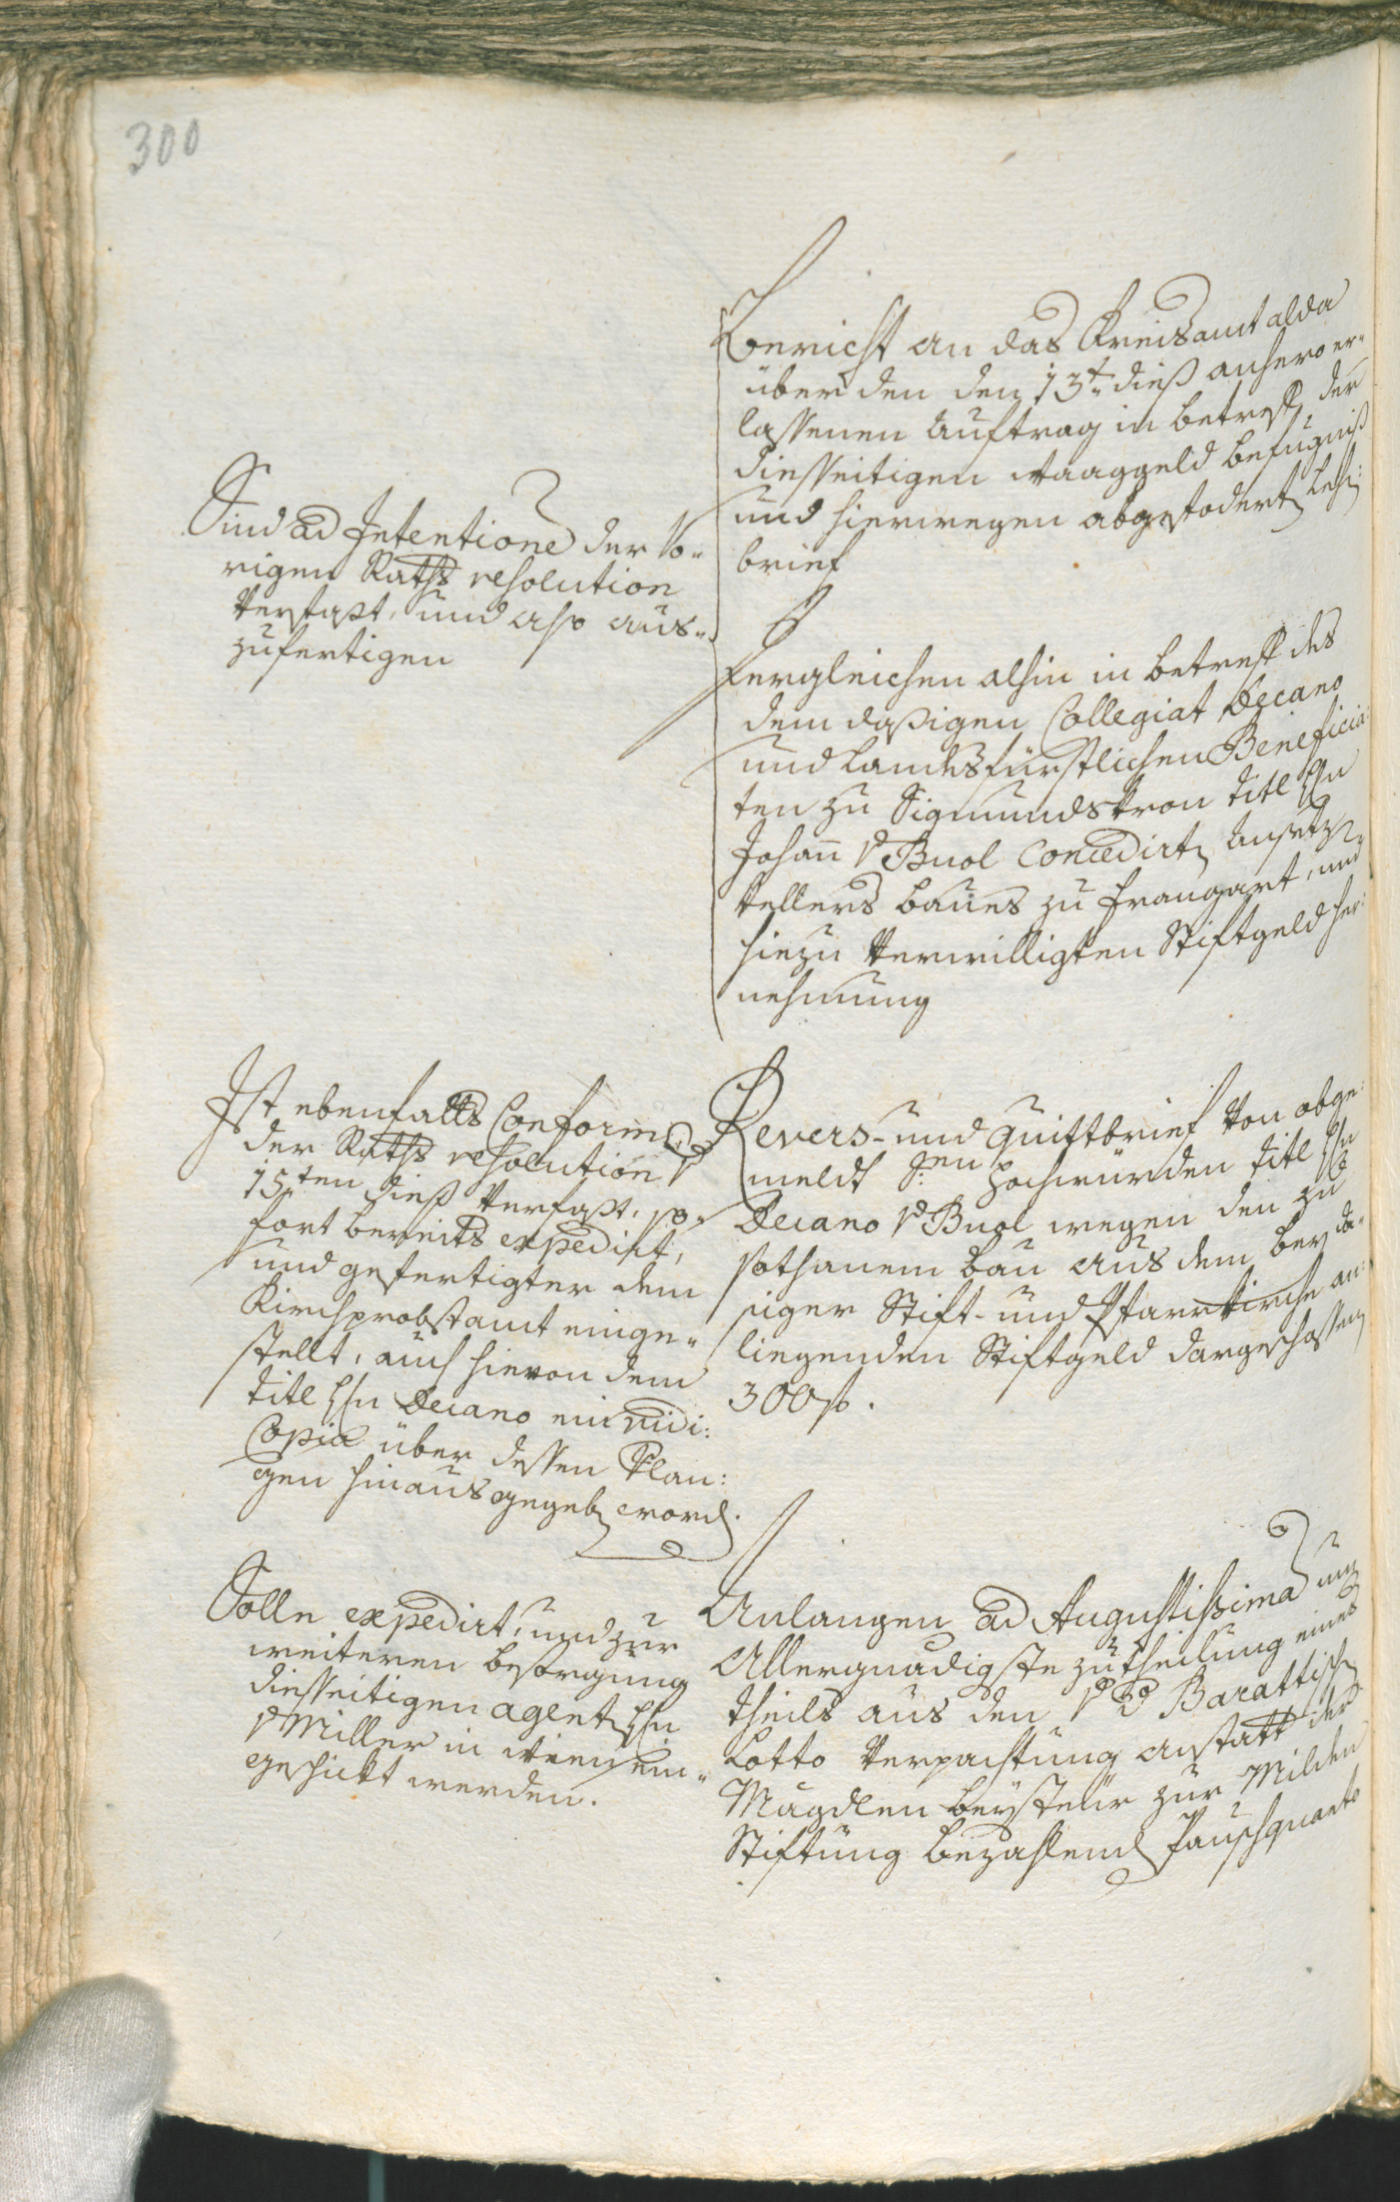 300
Bericht an das Kreisamt alda
über den den 13t: dieß anhero er-
lassenen Auftrag in betreff der
diesseitigen Waaggeld befugniß
und hierwegen abgefodert Leh:
brief
Sind ad Intentione der vo-
rigen Raths resolution
verfaßt, und also aus-
zufertigen
Dergleichen alhin in betreff des
dem dasigen Collegiat Decano
und Landesfürstlichen Beneficia
ten zu Sigmundskron titl Hn
Johan v Buol concedirt Ansetz
Kellers baues zu Frangart, und
hiezu verwilligten Stiftgeld her:
nehmung
Ist ebenfalls Conform
der Raths resolution v
15ten dieß verfaßt, so-
fort bereits expedirt,
und gefertigter dem
Kirchprobstamt einge-
stellt, auch hievon dem
titl Hn Decano ein vidi:
Copia über dessen Verlan:
gen hinausgegeb word.
Revers- und Quittbrief von obge-
meldt Sr.en Hochwürden titl Hn
Decano v Buol wegen den zu
sothanem bau aus dem bey da-
siger Stift- und Pfarrkirche an-
liegenden Stiftgeld dargeschossen
300 f.
Solle expedirt, und zur
weiteren besorgung
diesseitigen agent Hn
v Miller in Wien ein-
geschickt werden.
Anlangen ad Augustissima um
Allergnädigste zutheilung eines
theils aus den v Barattisch
Lotto Verpachtung anstatt der
Mägdlen beysteür zur Milden
Stiftung bezahlend Pauschquanto